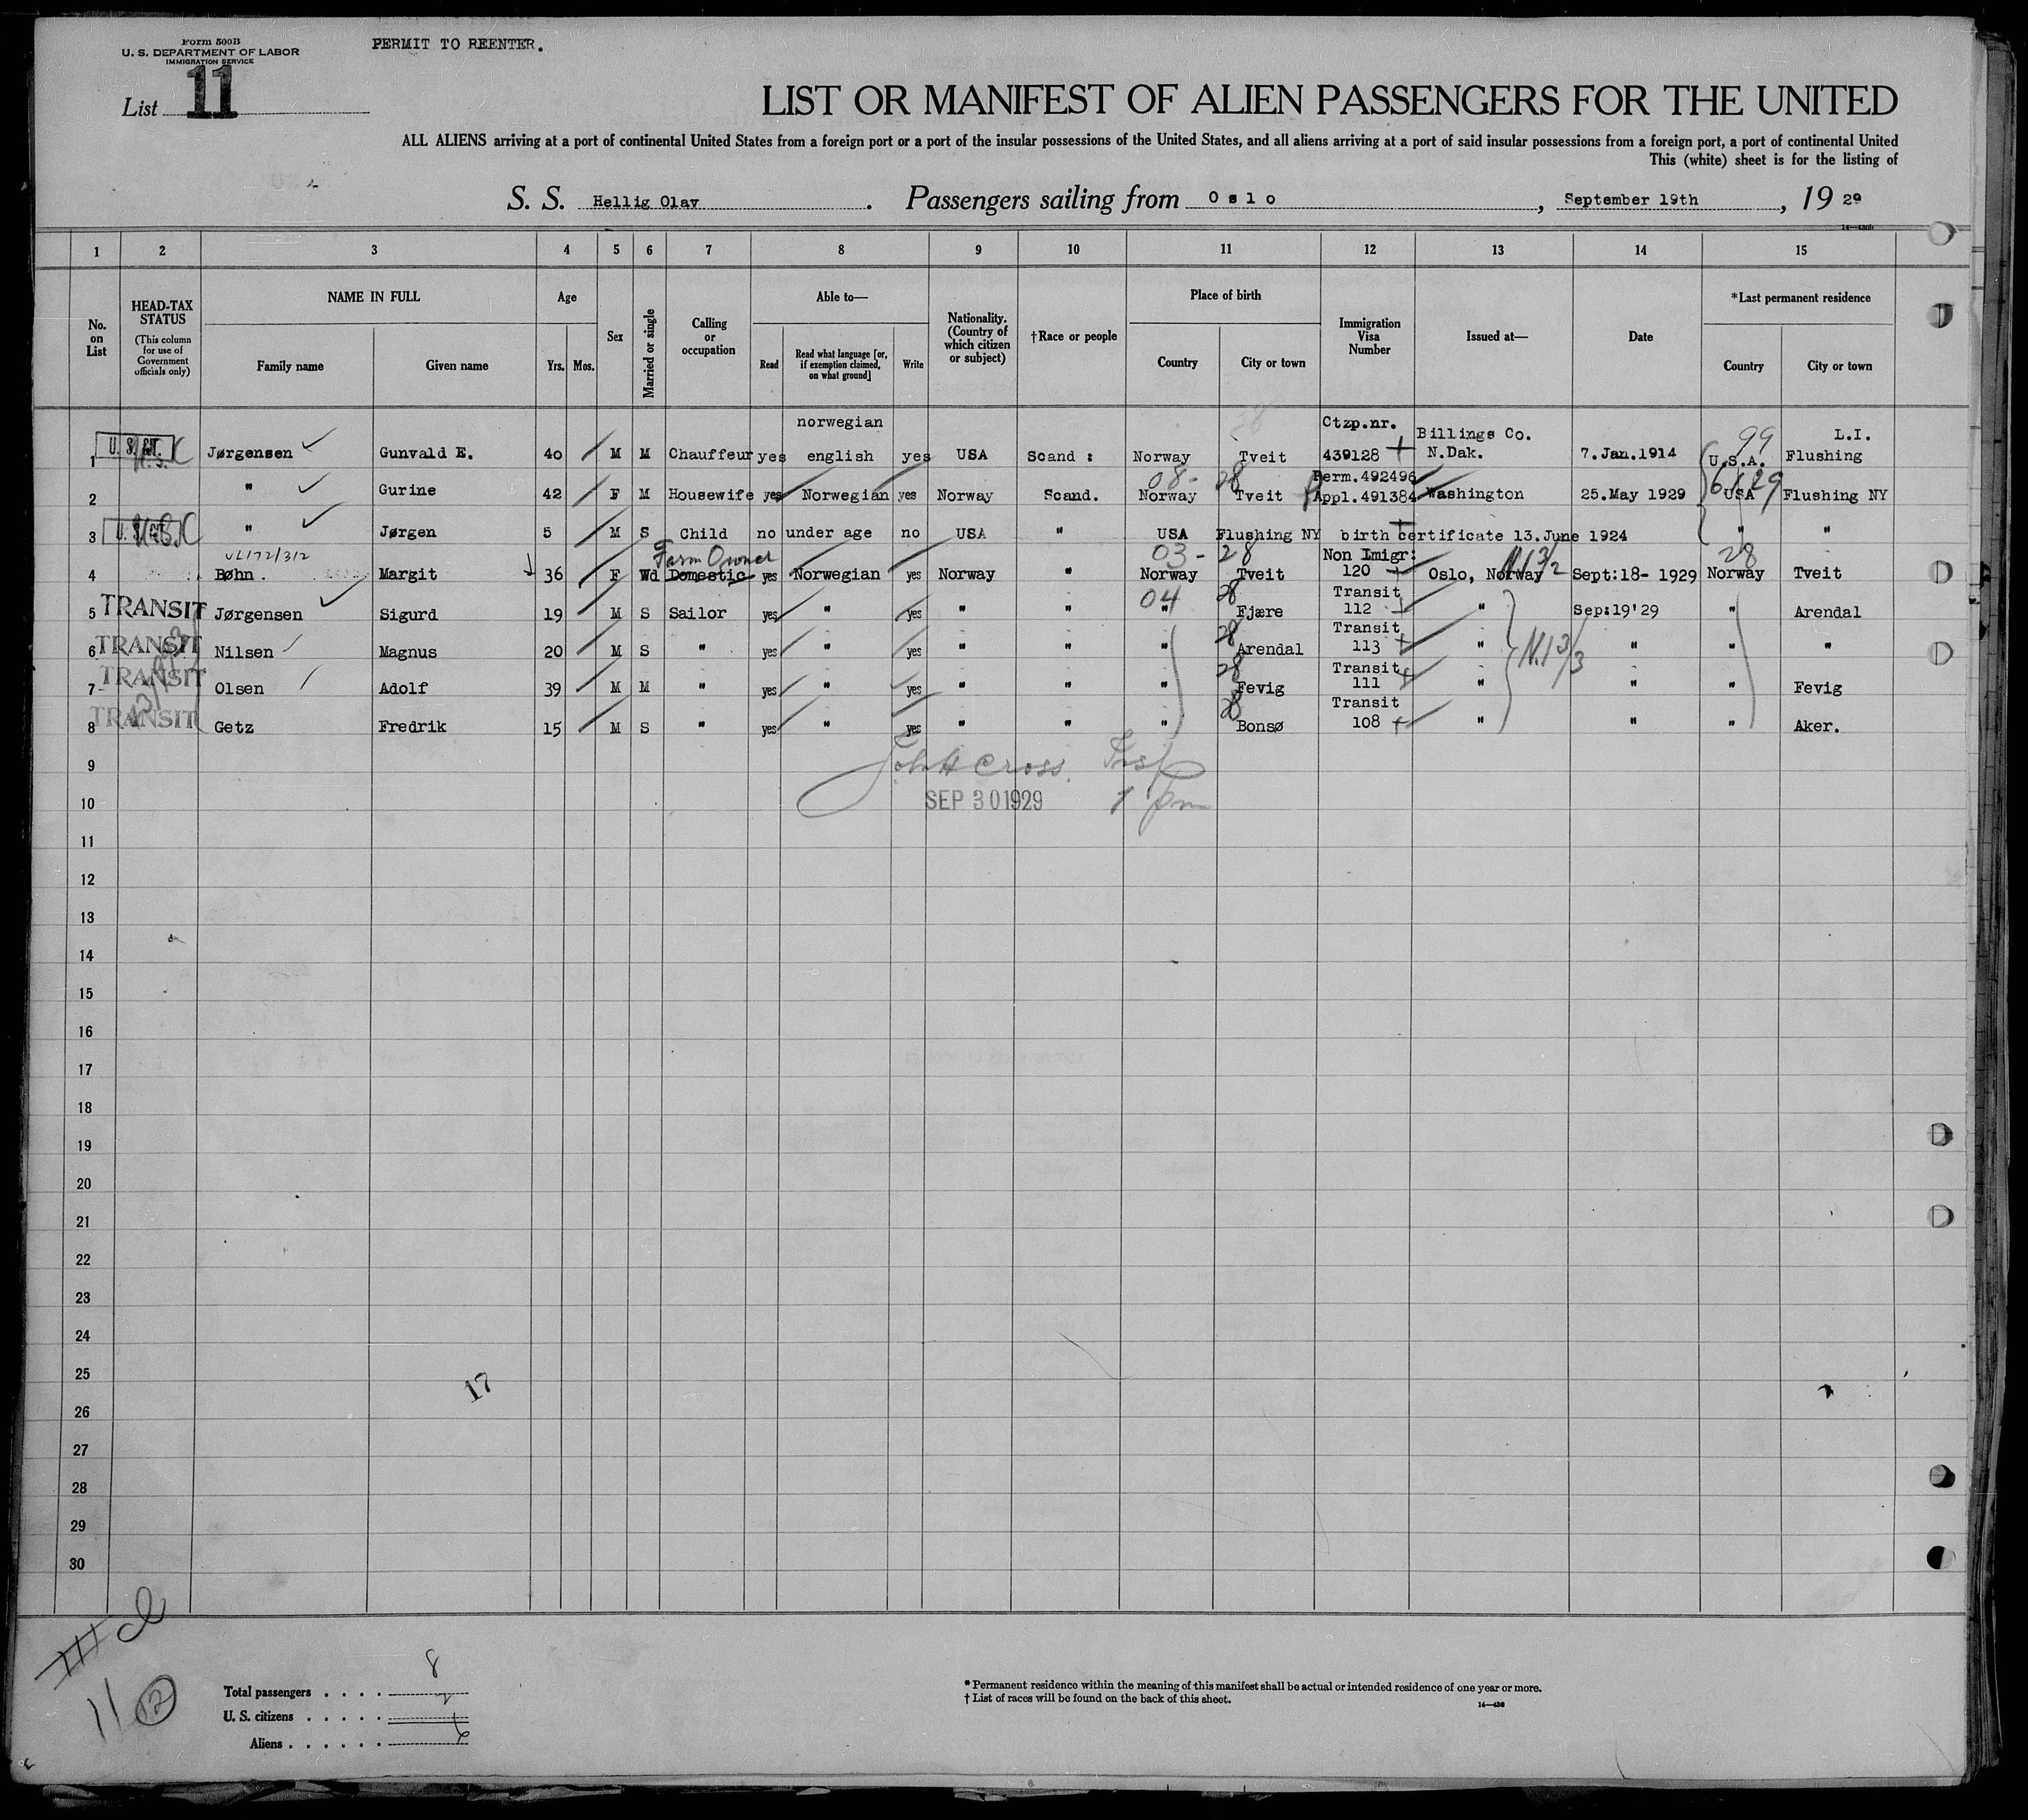 Form 500B
U. S. DEPARTMENT OF LABOR
IMMIGRATION SERVICE
PERMIT TO REENTER.
List 11
LIST OR MANIFEST OF ALIEN PASSENGERS FOR THE UNITED
ALL ALIENS arriving at a port of continental United States from a foreign port or a port of the insular possessions of the United States, and all aliens arriving at a port of said insular possessions from a foreign port, a port of continental United
This (white) sheet is for the listing of
S. S. Hellig Olav. Passengers sailing from Oslo, September 19th, 1929
14—430b
1 2 3 4 5 6 7 8 9 10 11 12 13 14 15
No. on List
HEAD-TAX STATUS (This column for use of Government officials only)
NAME IN FULL
Family name Given name
Age
Yrs. Mos.
Sex
Married or single
Calling or occupation
Able to—
Read
Read what language [or, if exemption claimed, on what ground]
Write
Nationality. (Country of which citizen or subject)
†Race or people
Place of birth
Country City or town
Immigration Visa Number
Issued at—
Date
*Last permanent residence
Country City or town
norwegian Ctzp.nr. Billings Co. 99 L.I.
1 U. S. CIT. Jørgensen Gunvald E. 40 M M Chauffeur yes english yes USA Scand : Norway Tveit 439128 N.Dak. 7.Jan.1914 U.S.A. Flushing
08- 28 Perm.492496 6/1/29
2 " Gurine 42 F M Housewife yes Norwegian yes Norway Scand. Norway Tveit Appl.491384 Washington 25.May 1929 USA Flushing NY
3 U. S. CIT. " Jørgen 5 M S Child no under age no USA " USA Flushing NY birth certificate 13.June 1924 " "
VL172/312 Farm Owner 03- 28 Non Imigr: N.1 3/2 28
4 Bøhn. Margit 36 F Wd Domestic yes Norwegian yes Norway " Norway Tveit 120 Oslo, Norway Sept:18- 1929 Norway Tveit
04 28 Transit
5 TRANSIT Jørgensen Sigurd 19 M S Sailor yes " yes " " " Fjære 112 " Sep:19'29 " Arendal
28 Transit
6 TRANSIT Nilsen Magnus 20 M S " yes " yes " " " Arendal 113 " N.1 3/3 " " "
28 Transit
7 TRANSIT Olsen Adolf 39 M M " yes " yes " " " Fevig 111 " " " Fevig
28 Transit
8 TRANSIT Getz Fredrik 15 M S " yes " yes " " " Bonsø 108 " " " Aker.
9 John H Cross. Insp
10 SEP 30 1929 1 pm
11
12
13
14
15
16
17
18
19
20
21
22
23
24
25 17
26
27
28
29
30
11 12
Total passengers . . . . 8
U. S. citizens . . . . . 2
Aliens . . . . . . 6
* Permanent residence within the meaning of this manifest shall be actual or intended residence of one year or more.
† List of races will be found on the back of this sheet.
14—430